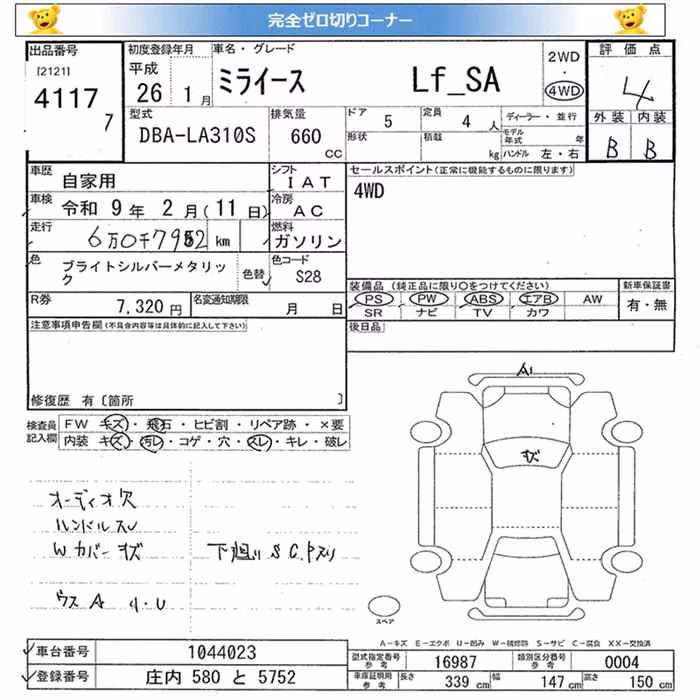 完全ゼロ切りコーナー
出品番号 初度登録年月 車名・グレード 評価点
[2121] 平成 2WD
4117 26 1月 ミライース Lf_SA ・ 4
7 4WD
型式 排気量 ドア 5 定員 4人 ディーラー・並行 外装 内装
DBA-LA310S 660 CC 形状 積載 kg モデル年式 年 B B
ハンドル 左・右
車歴 自家用 シフト IAT セールスポイント(正常に機能するものに限ります)
車検 令和 9年 2月(11日) 冷房 AC 4WD
走行 6万0千7952 km 燃料 ガソリン
色 ブライトシルバーメタリック 色替 色コード S28
装備品(純正品に限り○をつけてください) 新車保証書
R券 7,320円 名変通知期限 月 日 PS PW ABS エアB AW 有・無
SR ナビ TV カワ
注意事項申告欄(不具合内容等は具体的に記入して下さい) 後日品
修復歴 有〔箇所 〕
A1
検査員 FW キズ・飛石・ヒビ割・リペア跡・×要
記入欄 内装 キズ・汚レ・コゲ・穴・スレ・キレ・破レ
キズ
オーディオ欠
ハンドルスレ
Wカバーキズ 下廻り S C.Pスリ
ウス A リ・U
スペア
A-キズ E-エクボ U-凹み W-補修跡 S-サビ C-腐食 XX-交換済
車台番号 1044023 型式指定番号 参考 16987 類別区分番号 参考 0004
登録番号 庄内 580 と 5752 車庫証明用 参考 長さ 339cm 幅 147cm 高さ 150cm